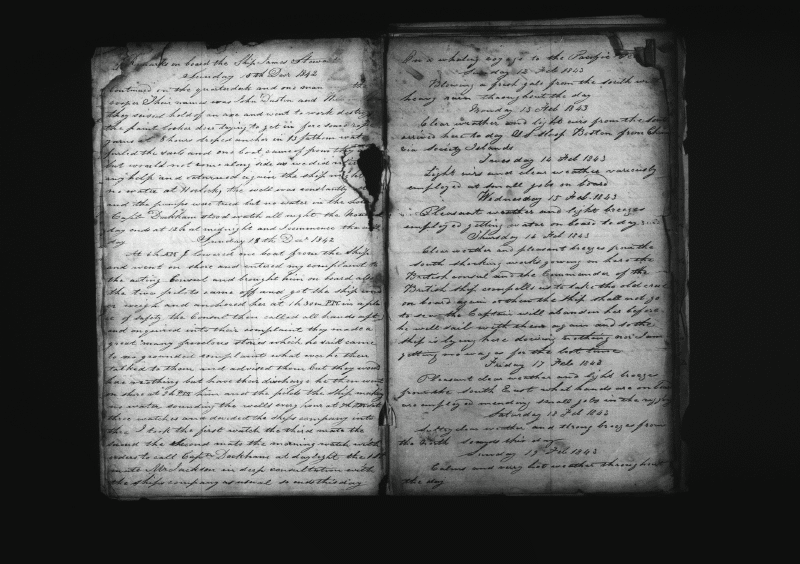 Remarks on board the Ship James Stewart
Saturday 10th Decr 1842
continued on the quarterdeck and one man
cooper Their names was John Dustin and
they seized hold of an axe and went to work
the panel locker door trying to get in
8 hours droped anchor in 13 fathoms water
furled the sails and one boat came of from the
but would not come along side as we did
any help and returned again the ship
no water at the well was constantly
and the pumps was tried but no water in the
Capt. Duckham stood watch all night the
day ends at 12 at midnight and commence the
day Sunday 18th Decr 1842
At 6 I lowered one boat from the Ship
and went on shore and entered my complaint to
the acting Consul and brought him on board also
the two pilots came off and got the ship
weigh and anchored her at in a place
of safety the Consul then called all hands aft
and enquired into their complaint they made a
great many frivolous stories which he said came
to no grounded complaint what ever he then
talked to them and advised them but they would
have nothing but have their discharge he then went
on shore at him and the pilots the Ship making
no water sounding the wells every hour at
three watches and divided the ships company into
the I took the first watch the third mate the
second the second mate the morning watch with
orders to call Capt. Duckham at daylight the 1st
mate Mr Jackson in deep consultation with
the ships company as usual so ends this day
On a whaling voyage to the Pacific
Sunday 12 Feb 1843
Blowing a fresh gale from the south with
heavy rain throughout the day
Monday 13 Feb 1843
Clear weather and light airs from the
arrived here to day US Ship Boston from
via Society Islands
Tuesday 14 Feb 1843
Light airs and clear weather variously
employed at small jobs on board
Wednesday 15 Feb 1843
Pleasant weather and light breezes
employed getting water on board to day
Thursday 16 Feb 1843
Clear weather and pleasant breezes from the
south shocking works going on here the
British consul and the Commander of the
British ship compells us to take the old crew
on board again or them the ship shall not go
to sea the Captain will abandon her before
he will sail with them again and so the
ship is lying here doing nothing nor I am
getting no wages for the lost time
Friday 17 Feb 1843
Pleasant clear weather and light breeze
from the South East what hands are on board
are employed mending small jobs in the rigging
Saturday 18 Feb 1843
Sultry clear weather and strong breezes from
the South so ends this day
Sunday 19 Feb 1843
Calms and very hot weather throughout
the day